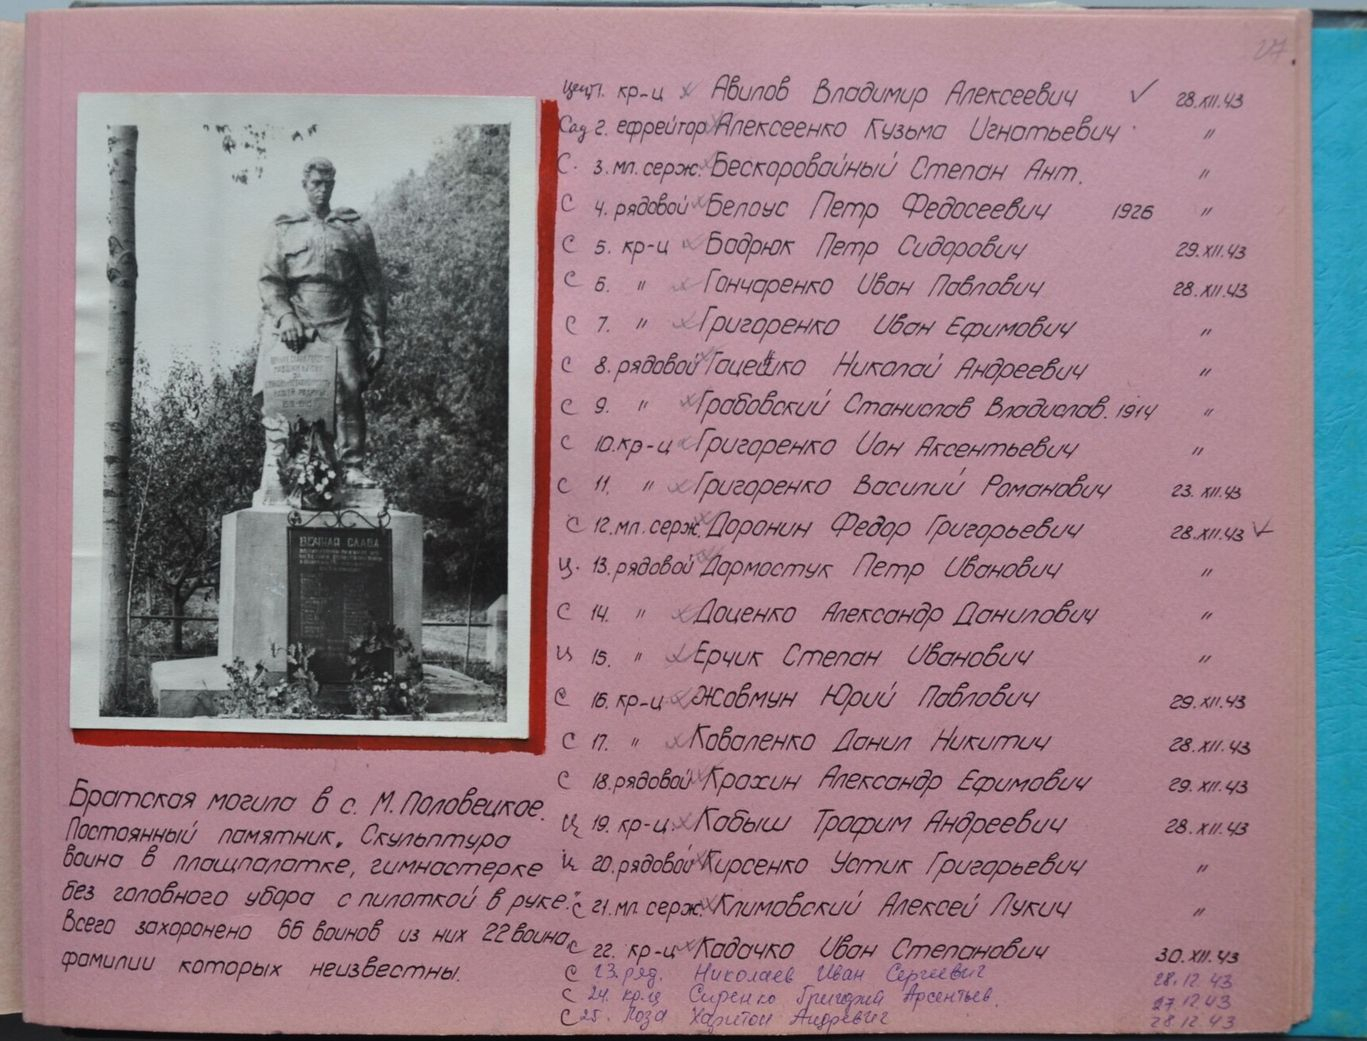 27
ВЕЧНАЯ СЛАВА
Братская могила в с. М. Половецкое.
Постоянный памятник. Скульптура
воина в плащпалатке, гимнастерке
без головного убора с пилоткой в руке.
Всего захоронено 66 воинов из них 22 воина,
фамилии которых неизвестны.
1. кр-ц Авилов Владимир Алексеевич 28.XII.43
Сад 2. ефрейтор Алексеенко Кузьма Игнатьевич "
С. 3. мл. серж. Бескоровайный Степан Ант. "
С 4. рядовой Белоус Петр Федосеевич 1926 "
С 5. кр-ц Бадрюк Петр Сидорович 29.XII.43
С 6. " Гончаренко Иван Павлович 28.XII.43
С 7. " Григоренко Иван Ефимович "
С 8. рядовой Николай Андреевич "
С 9. " Грабовский Станислав Владислав. 1914 "
С 10. кр-ц Григоренко Ион Аксентьевич "
С 11. " Григоренко Василий Романович 23.XII.43
С 12. мл. серж. Доронин Федор Григорьевич 28.XII.43
Ц. 13. рядовой Дормостук Петр Иванович "
С 14. " Доценко Александр Данилович "
Ц 15. " Ерчик Степан Иванович "
С 16. кр-ц Жовмун Юрий Павлович 29.XII.43
С 17. " Коваленко Данил Никитич 28.XII.43
С 18. рядовой Крахин Александр Ефимович 29.XII.43
Ц 19. кр-ц. Кабыш Трофим Андреевич 28.XII.43
Ц 20. рядовой Кирсенко Устик Григорьевич "
С 21. мл. серж. Климовский Алексей Лукич "
С 22. кр-ц Кадачко Иван Степанович 30.XII.43
С 23. ряд. Николаев Иван Сергеевич 28.12.43
С 24. кр.ц Сиренко Григорий Арсентьев. 27.12.43
С 25. Лоза Харитон Андревич 28.12.43